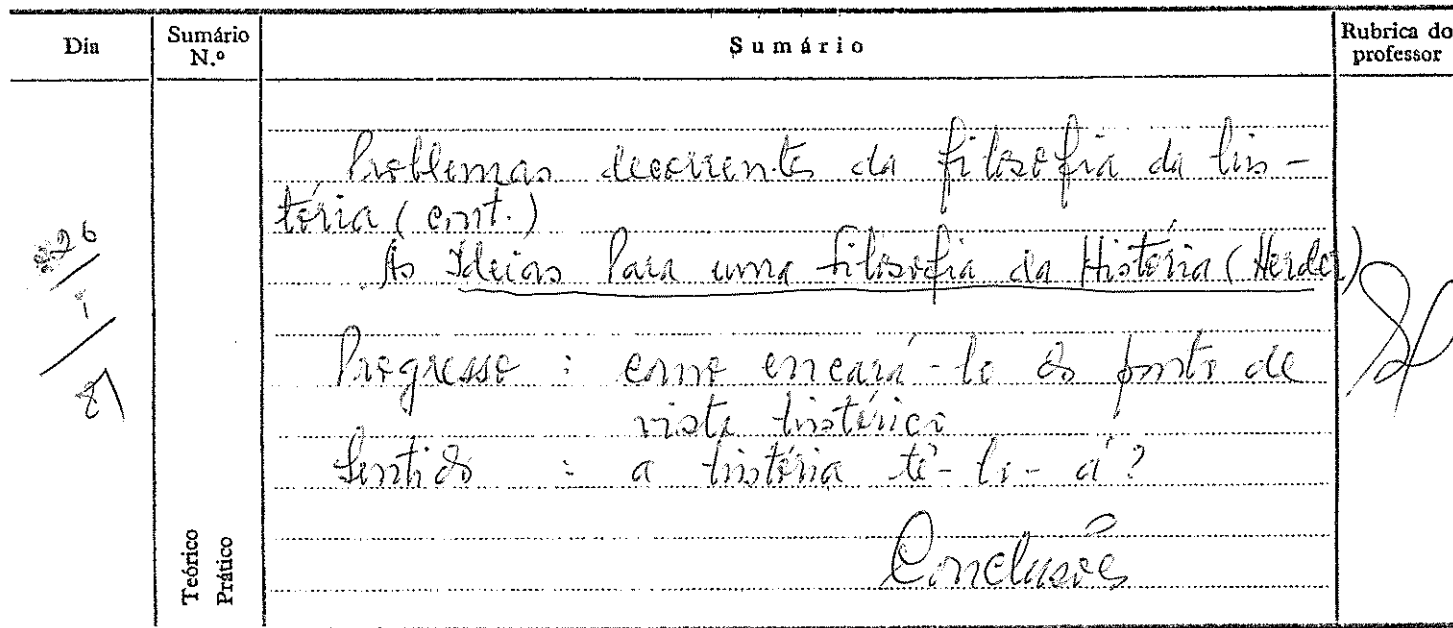 Dia
Sumário N.º
Sumário
Rubrica do professor
Problemas decorrentes da filosofia da his-
tória (cont.)
As Ideias Para uma Filosofia da História (Herder)
Progresso : como encará-lo do ponto de
vista histórico
Sentido : a história tê-lo-á?
Conclusões
26
1
87
Teórico
Prático